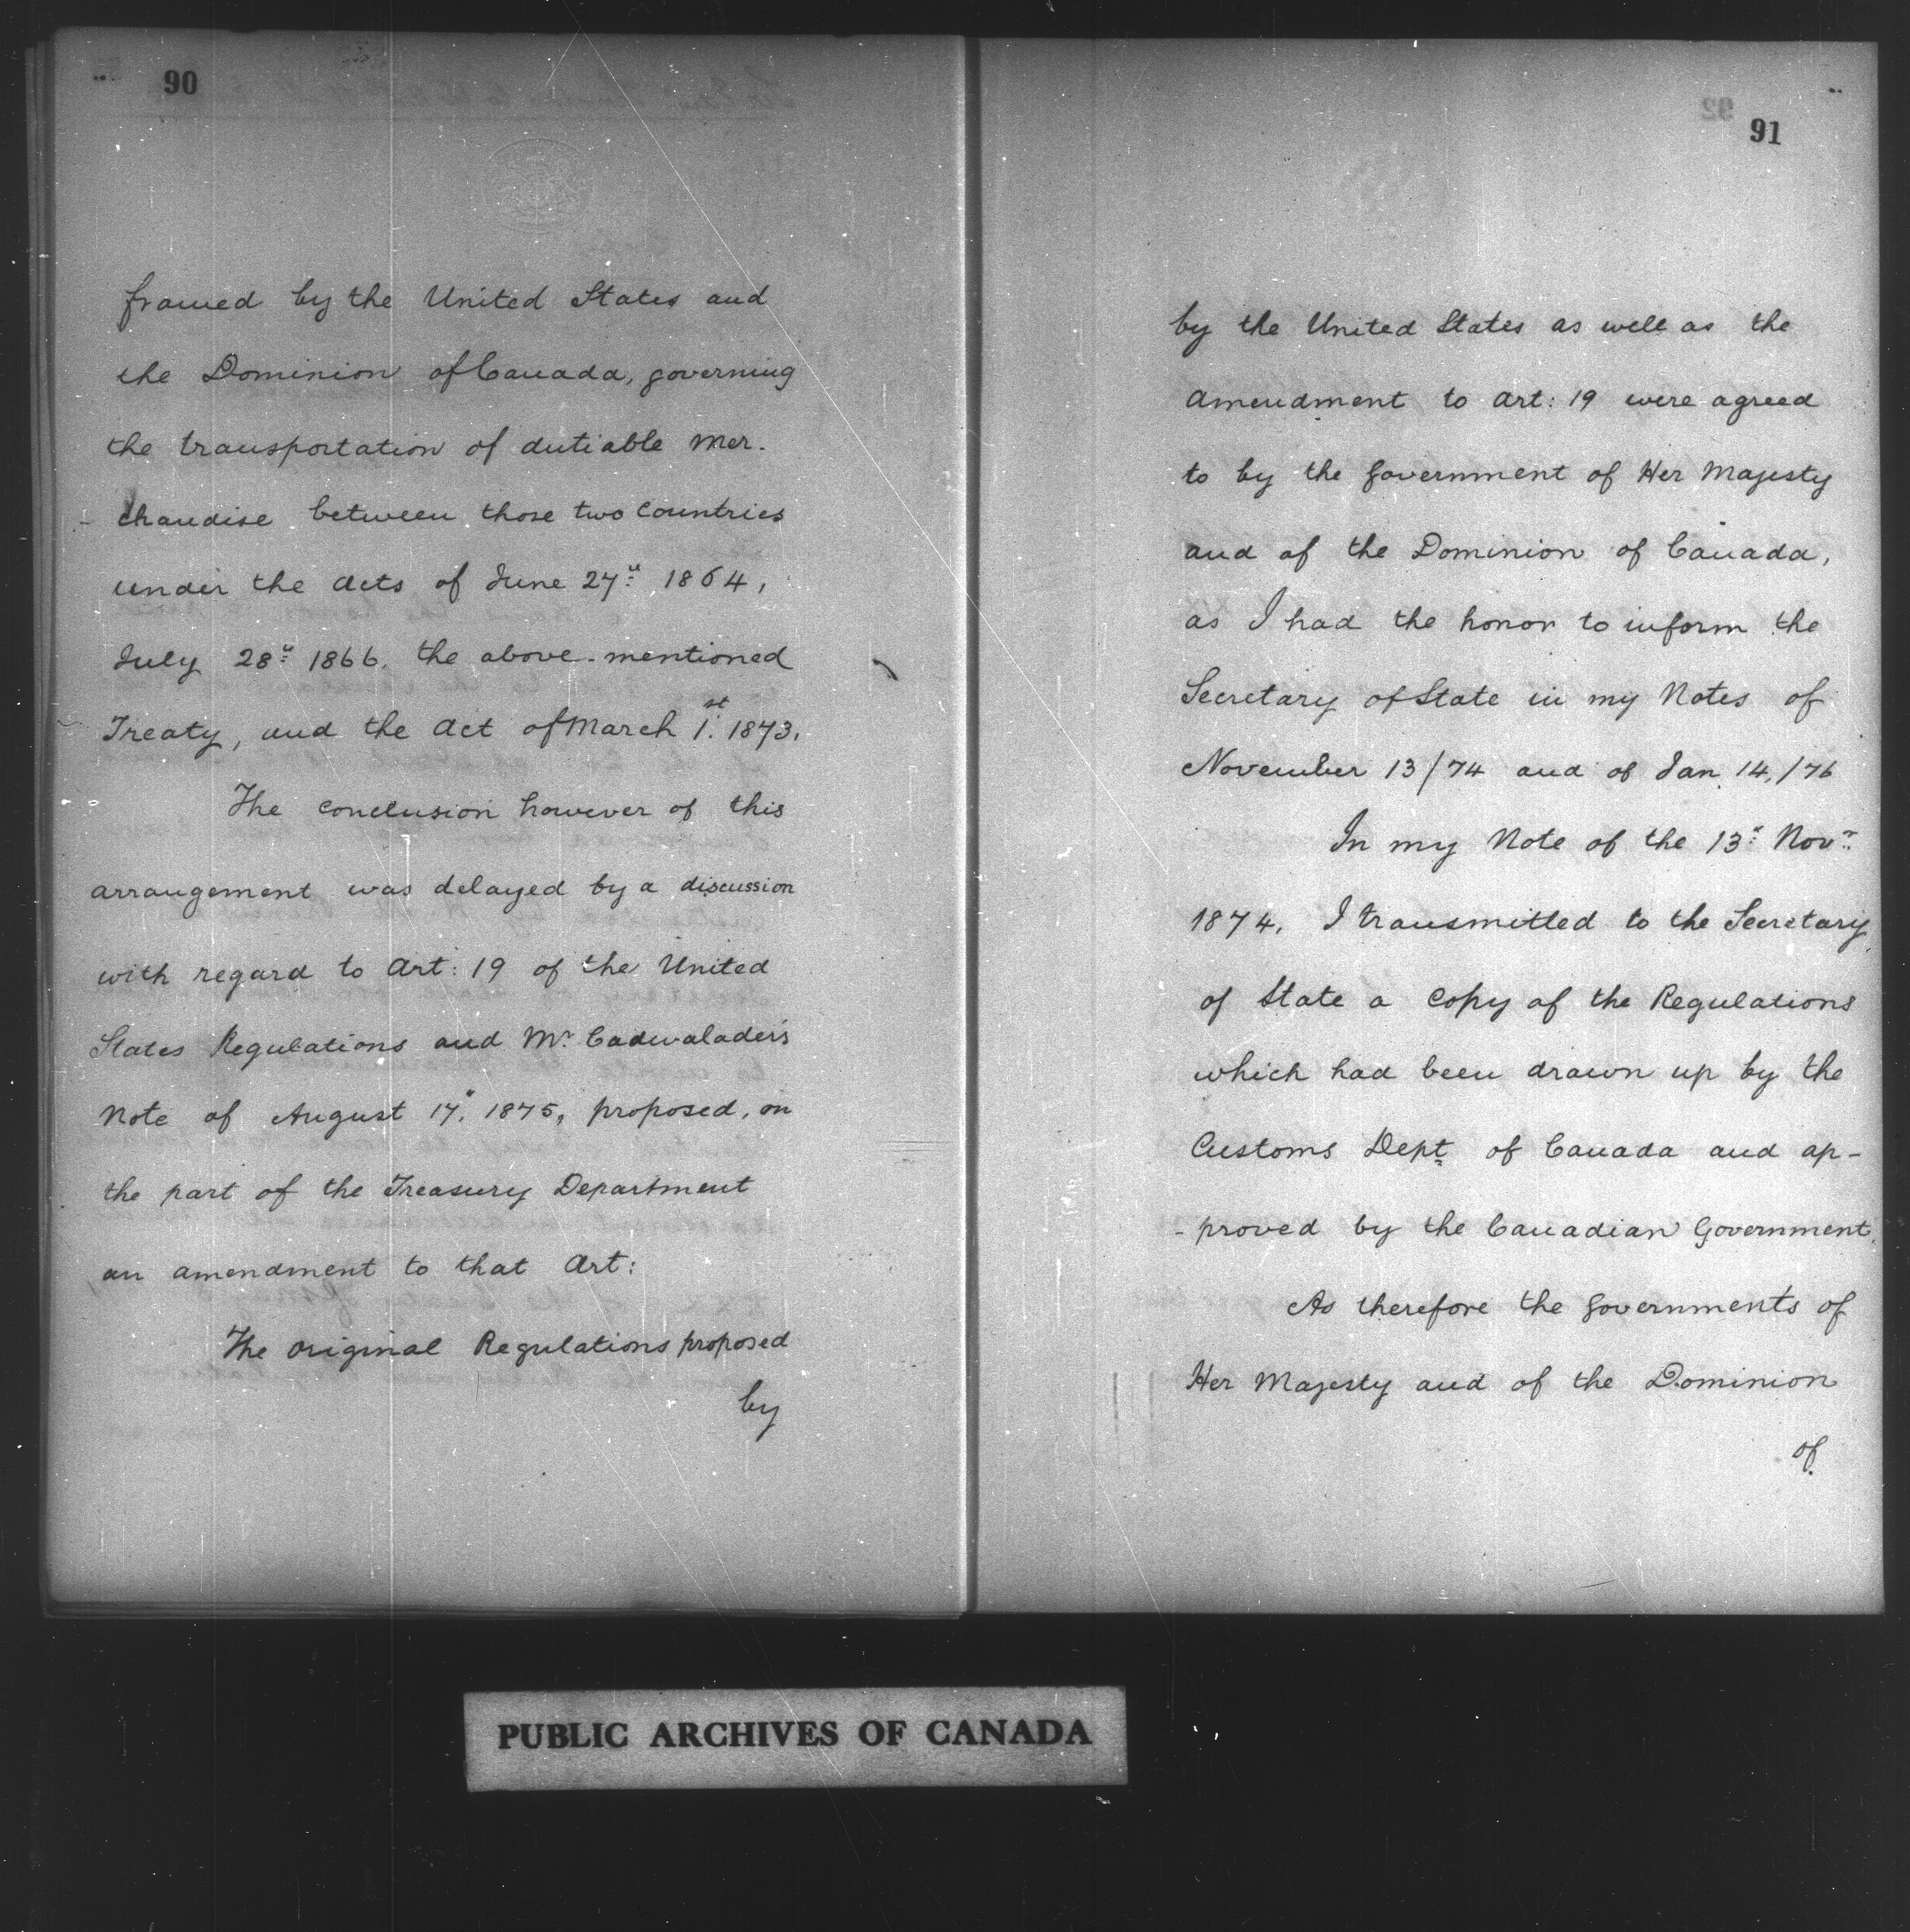 90
framed by the United States and
the Dominion of Canada, governing
the transportation of dutiable Mer-
- chandise between those two Countries
under the Acts of June 27" 1864,
July 28" 1866. the above-mentioned
Treaty, and the Act of March 1st 1873.
The conclusion however of this
arrangement was delayed by a discussion
with regard to Art: 19 of the United
States Regulations and Mr. Cadwalader's
Note of August 17" 1875, proposed, on
the part of the Treasury Department
an amendment to that Art:
The Original Regulations proposed
by
91
by the United States as well as the
Amendment to Art: 19 were agreed
to by the Government of Her Majesty
and of the Dominion of Canada,
as I had the honor to inform the
Secretary of State in my Notes of
November 13/74 and of Jan 14,/76
In my Note of the 13" Novr.
1874, I transmitted to the Secretary
of State a Copy of the Regulations
which had been drawn up by the
Customs Dept of Canada and ap-
- proved by the Canadian Government.
As therefore the Governments of
Her Majesty and of the Dominion
of
PUBLIC ARCHIVES OF CANADA